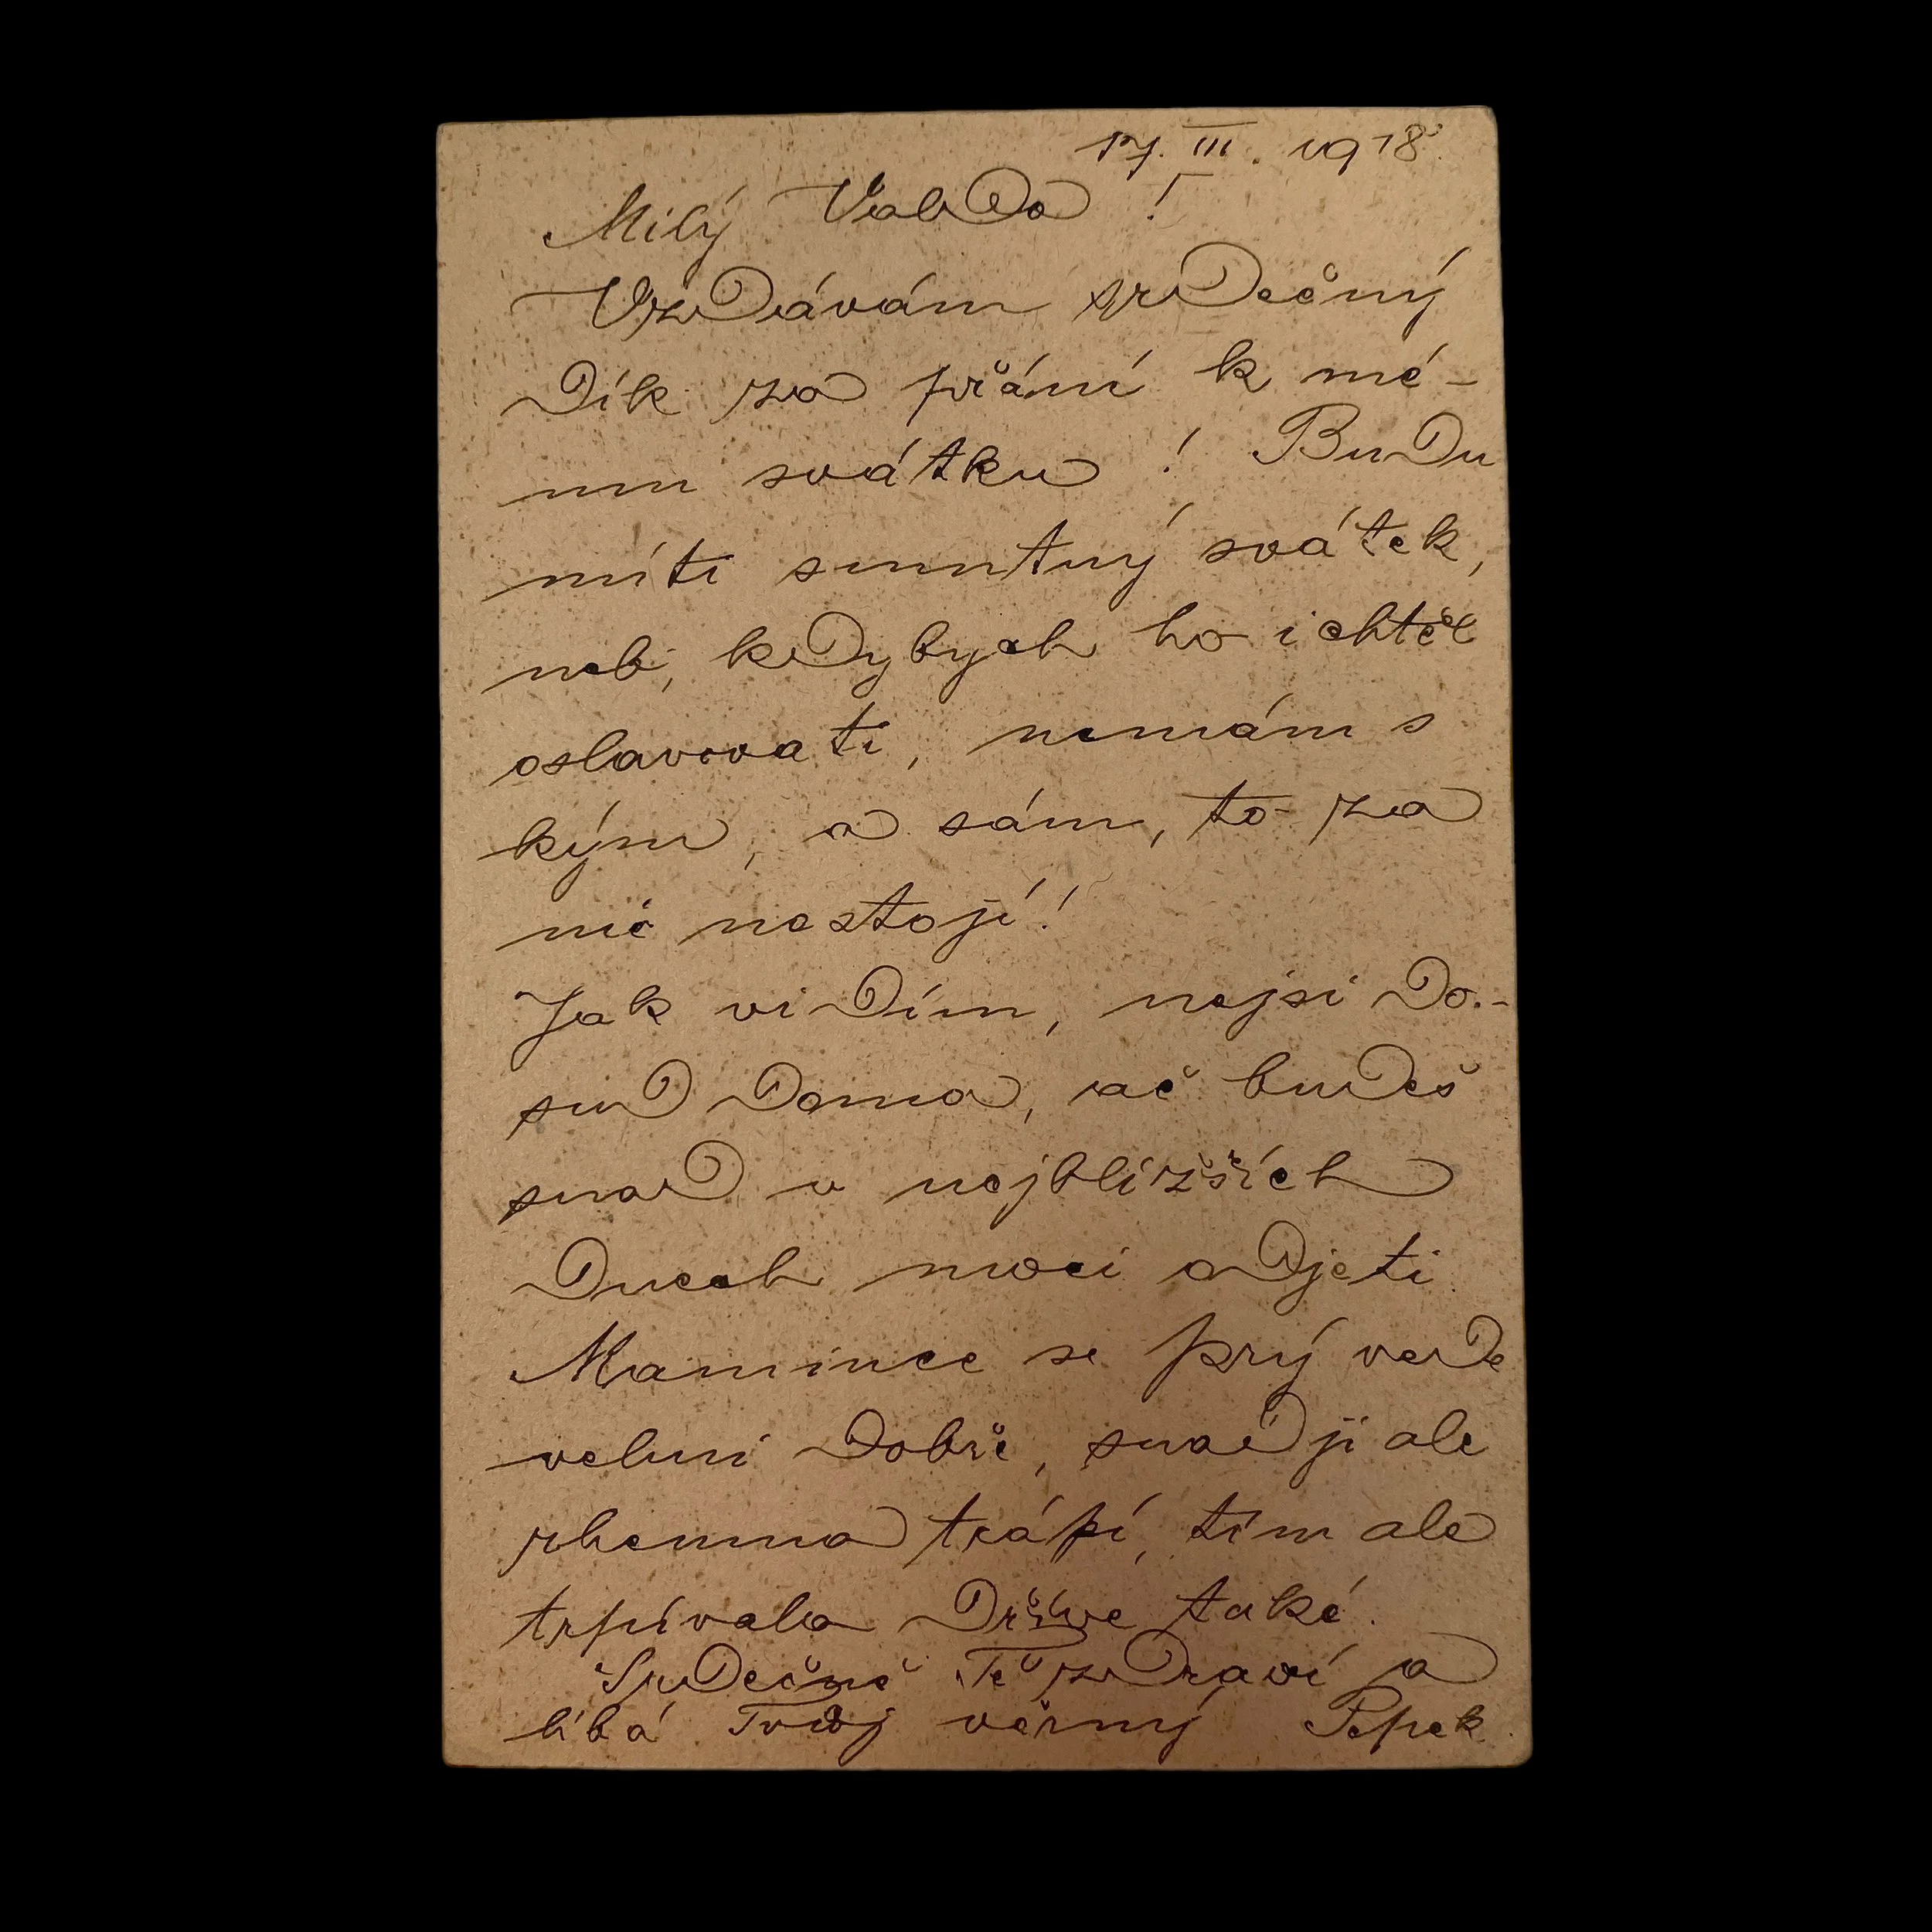 17. III. 1918.
Milý Valdo!
Vzdávám srdečný
dík za přání k mé-
mu svátku! Budu
míti smutný svátek,
neb, kdybych ho i chtěl
oslavovati, nemám s
kým, a sám, to za
nic nestojí!
Jak vidím, nejsi do-
sud doma, ač budeš
snad v nejbližších
dnech moci odjeti
Mamince se prý vede
velmi dobře, snad ji ale
rheuma trápí, tím ale
trpívala dříve také.
Srdečně Tě zdraví a
líbá Tvůj věrný Pepek.